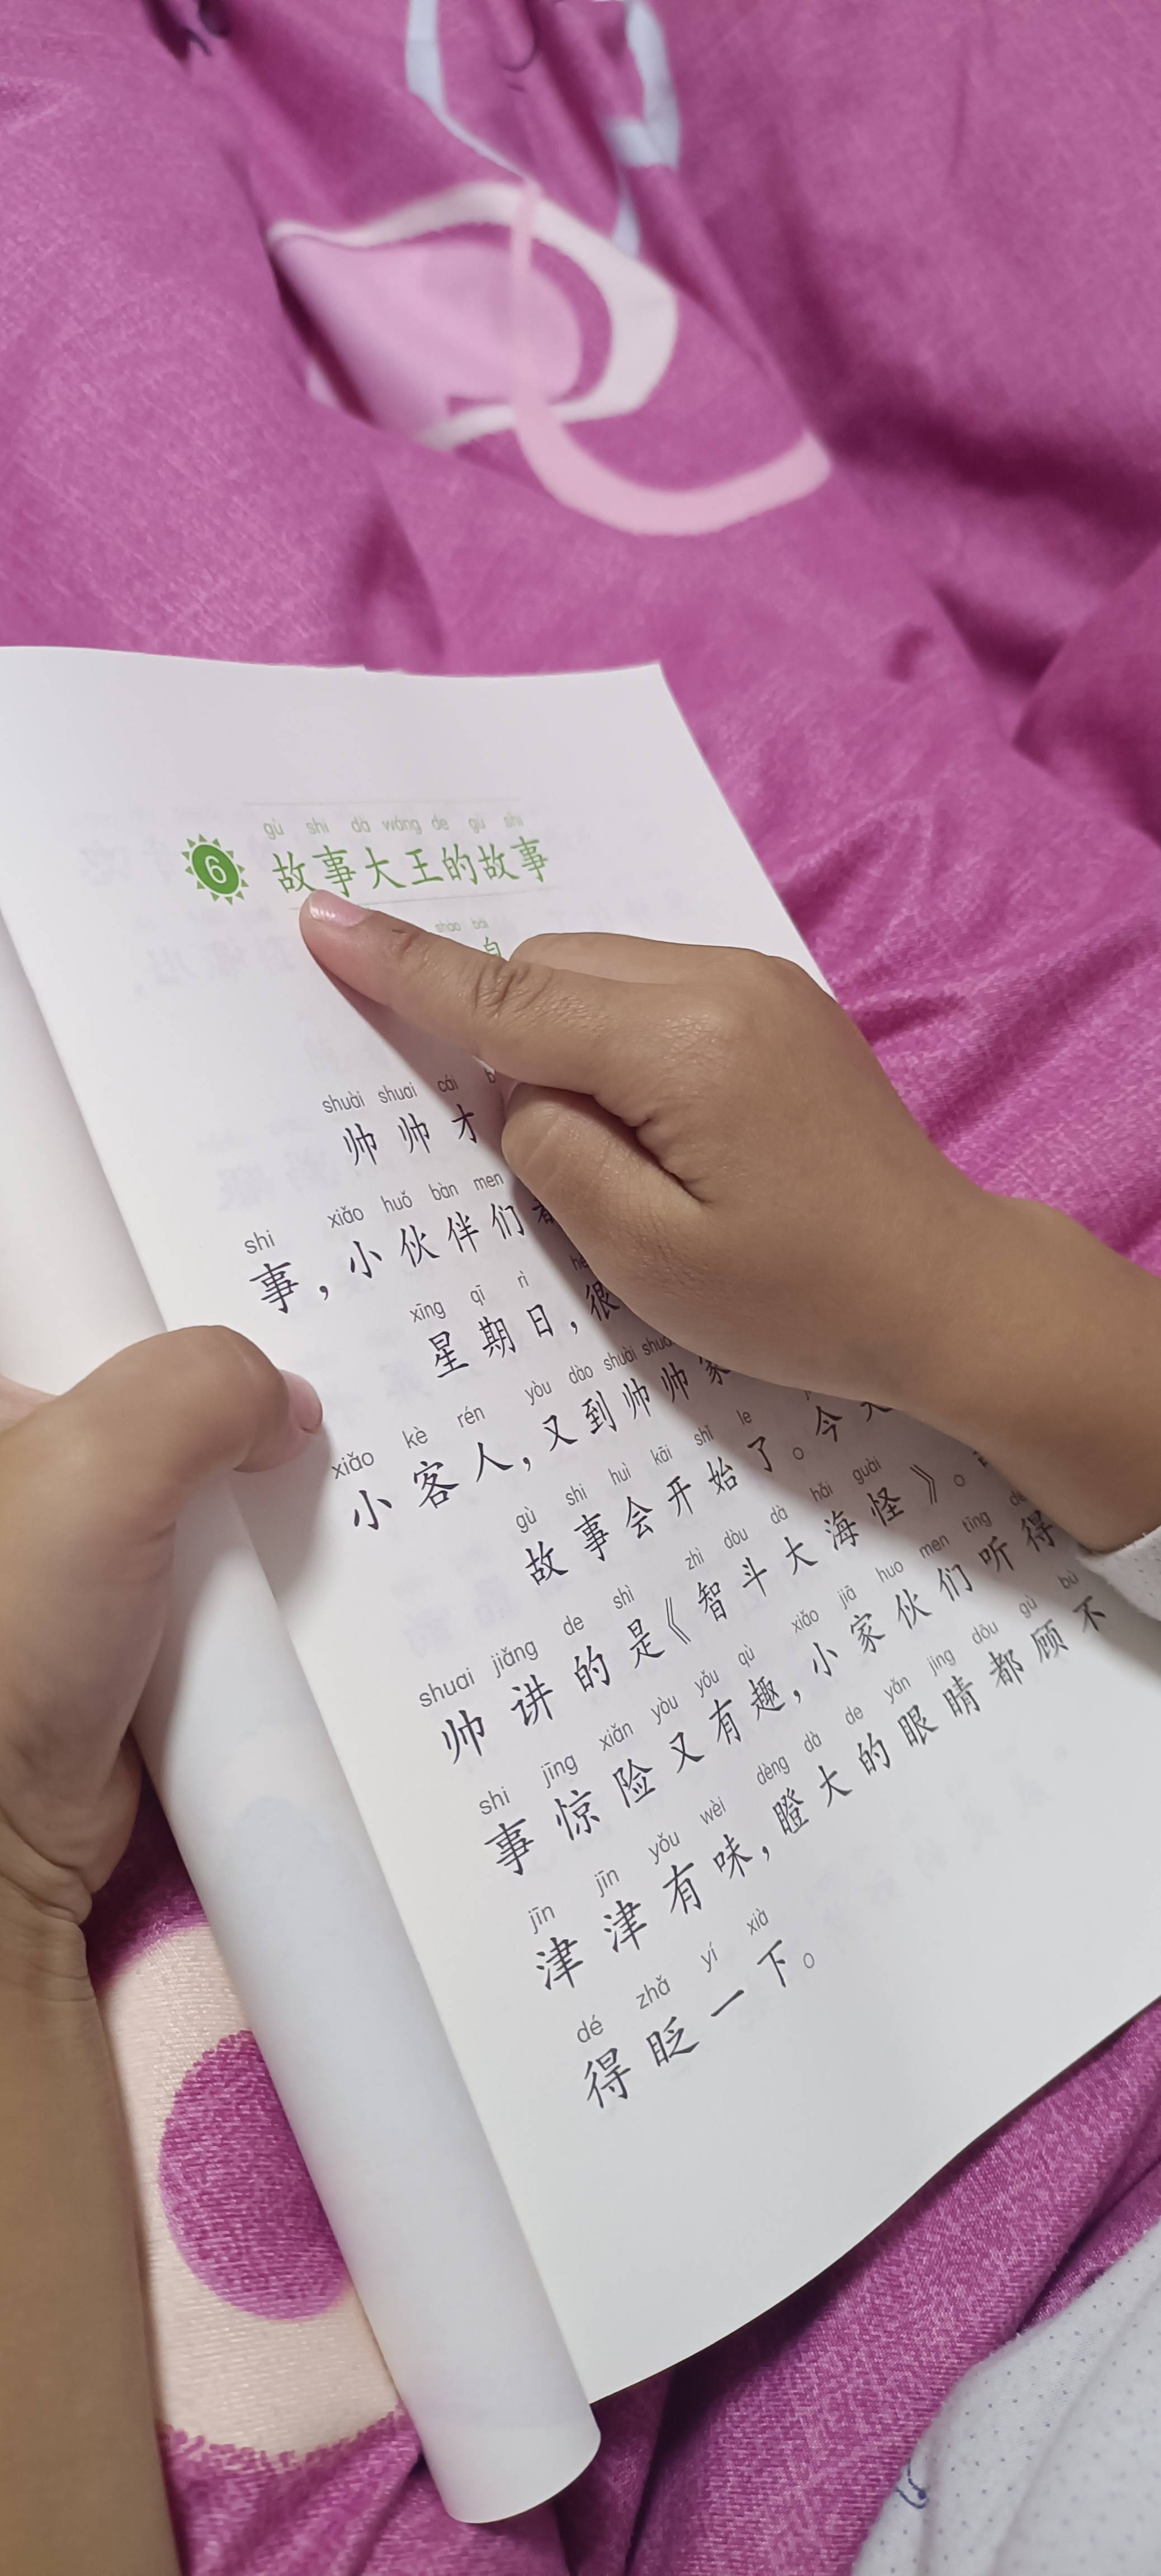 gù shi dà wáng de gù shi
6 故事大王的故事
shào bái
shuài shuai cái
帅帅才
shi xiǎo huǒ bàn men
事，小伙伴们
xīng qī rì
星期日，很
xiǎo kè rén yòu dào shuài shuai
小客人，又到帅帅家
gù shi huì kāi shǐ le
故事会开始了。今天
shuai jiǎng de shì zhì dòu dà hǎi guài
帅讲的是《智斗大海怪》。
shi jīng xiǎn yòu yǒu qù xiǎo jiā huo men tīng de
事惊险又有趣，小家伙们听得
jīn jīn yǒu wèi dèng dà de yǎn jing dōu gù bù
津津有味，瞪大的眼睛都顾不
dé zhǎ yí xià
得眨一下。